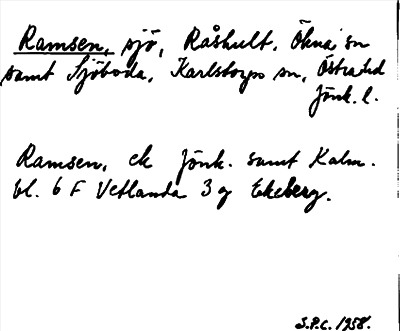 Ramsen, sjö, Råshult, Ökna sn
samt Sjöboda, Karlstorps sn, Östra hd
Jönk. l.
Ramsen, ek Jönk. samt Kalm.
bl. 6 F Vetlanda 3 g Ekeberg.
S.P.C. 1958.